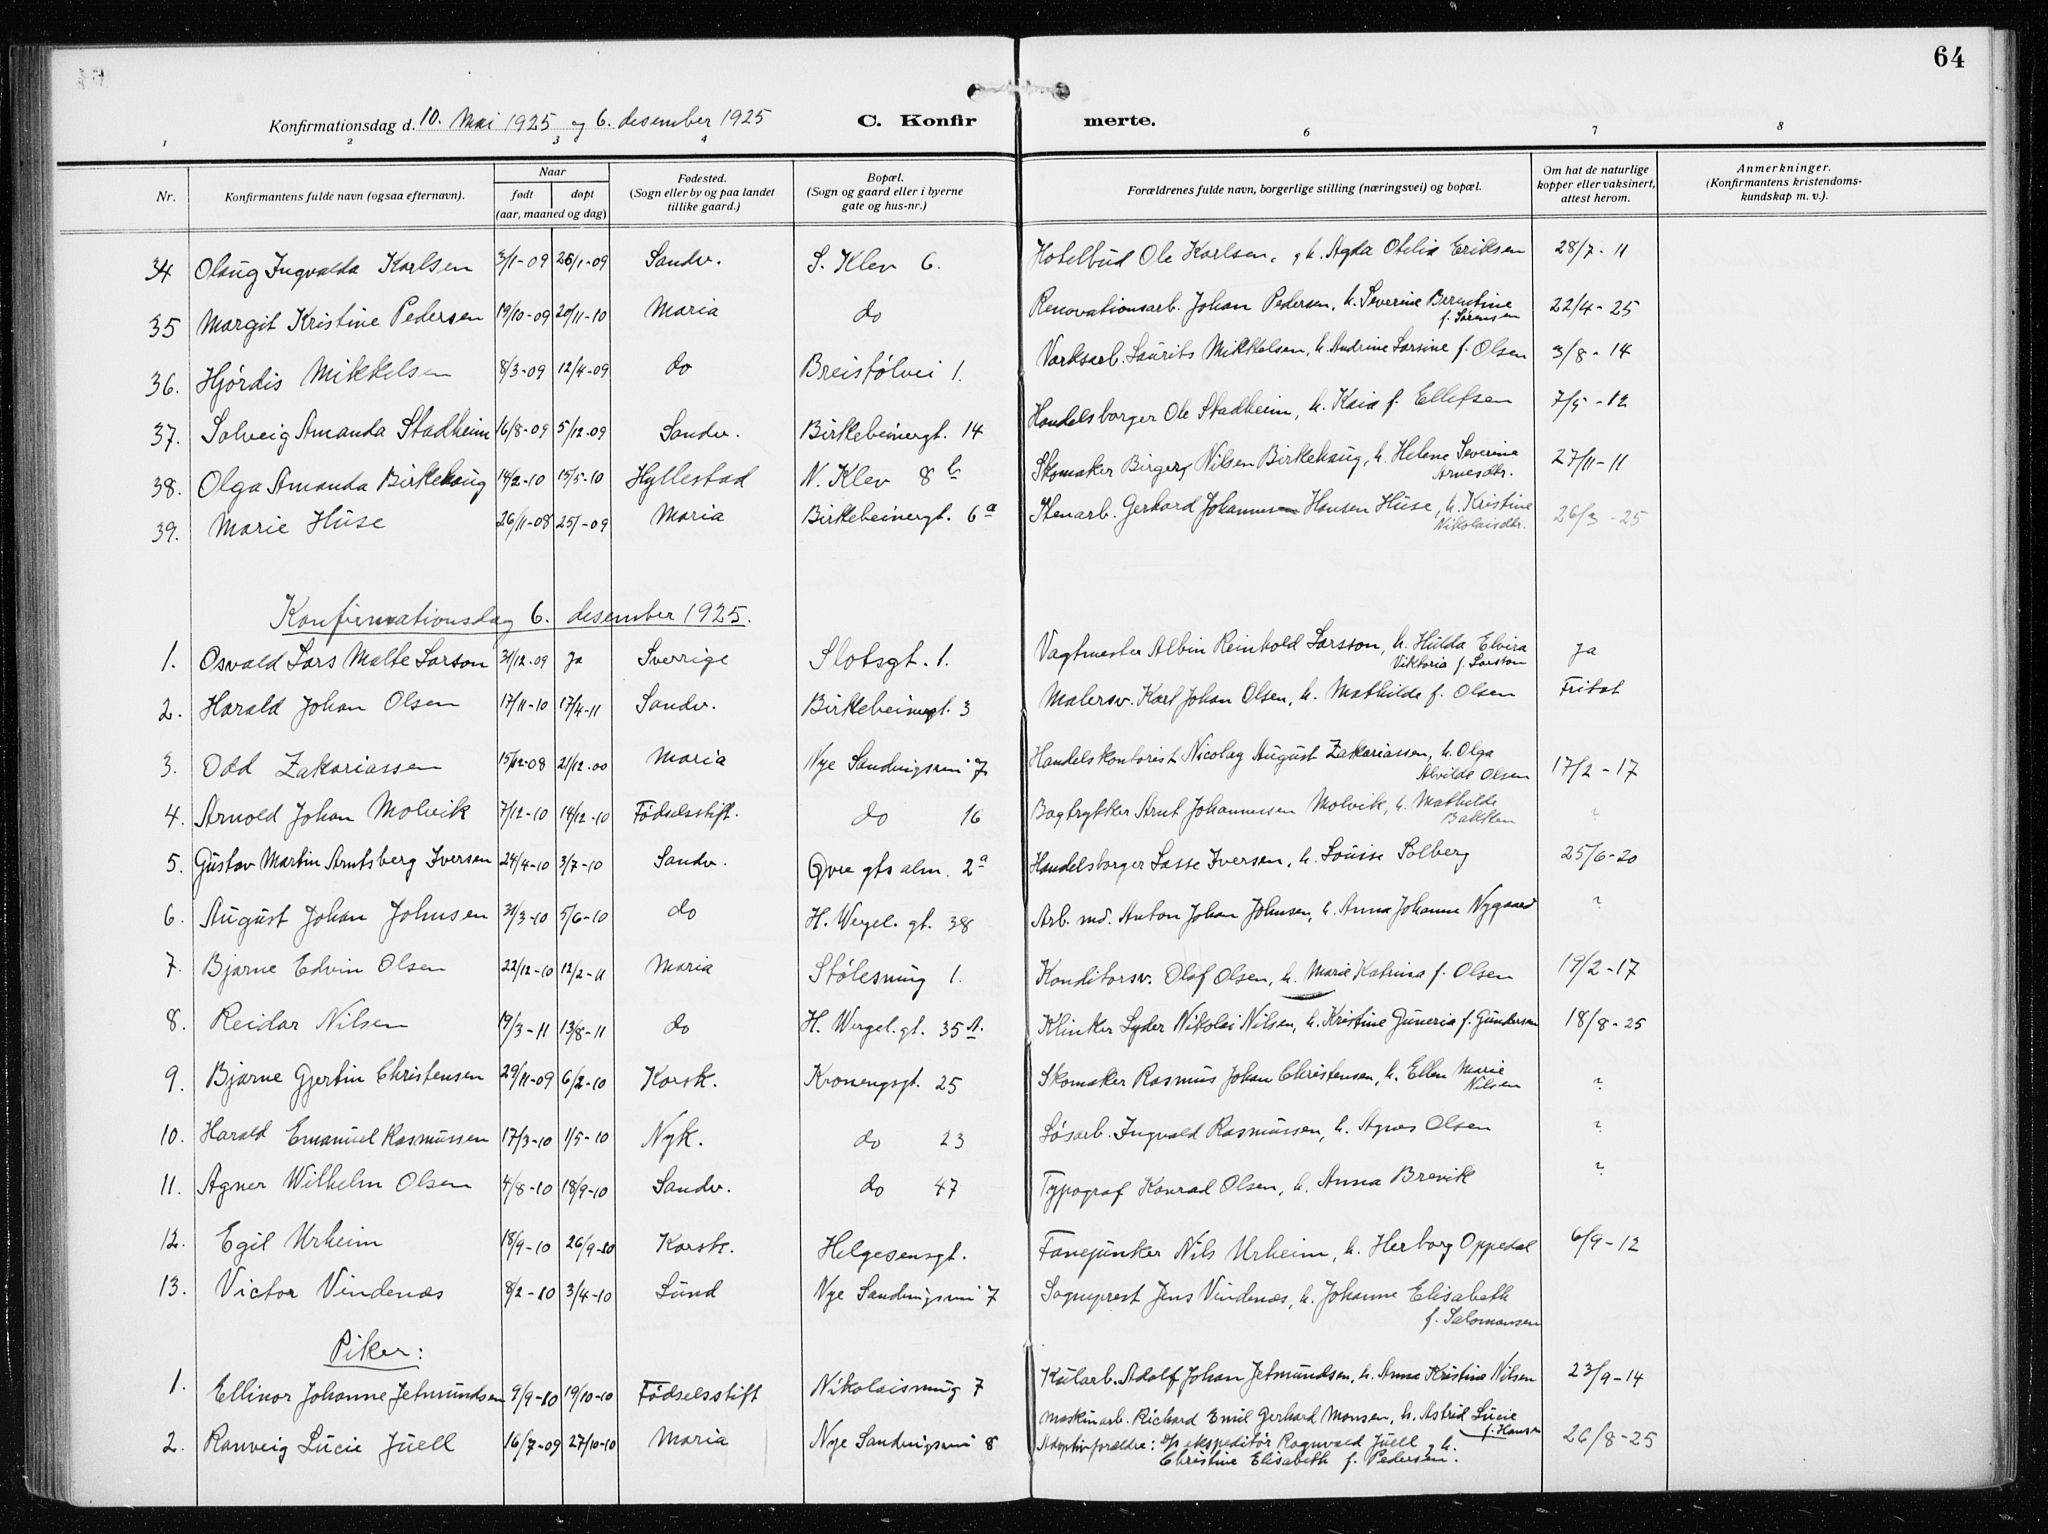 64
Konfirmationsdag d. 10. Mai 1925 og 6. desember 1925 C. Konfir merte.
1 2 3 4 6 7 8
Nr. Konfirmantens fulde navn (ogsaa efternavn). Naar født døpt (aar, maaned og dag) Fødested. (Sogn eller by og paa landet tillike gaard.) Bopæl. (Sogn og gaard eller i byerne gate og hus-nr.) Forældrenes fulde navn, borgerlige stilling (næringsvei) og bopæl. Om hat de naturlige kopper eller vaksinert, attest herom. Anmerkninger. (Konfirmantens kristendoms- kundskap m. v.).
34 Olaug Ingvalda Karlsen 3/1-09 26/1-09 Sandv. S. Klev 6. Hotelbud Ole Karlsen, h. Agda Otelia Eriksen 28/7-11
35 Margit Kristine Pedersen 19/10-09 20/11-10 Maria do Renovationsarb. Johan Pedersen, h. Severine Berntine f. Sørensen 22/4-25
36. Hjørdis Mikkelsen 8/3-09 12/4-09 do Breistølvei 1. Verksarb. Laurits Mikkelsen, h. Andrine Larsine f. Olsen 3/8-14
37. Solveig Amanda Stadheim 16/8-09 5/12-09 Sandv. Birkebeinergt. 14 Handelsborger Ole Stadheim, h. Kaia f. Ellefsen 7/5-12
38. Olga Amanda Birkehaug 14/2-10 15/5-10 Hyllestad N. Klev 8b Skomaker Birger Nilsen Birkehaug, h. Helene Severine Arnesdtr. 27/11-11
39. Marie Huse 26/11-08 25/-09 Maria Birkebeinergt. 6a Stenarb. Gerhard Johannesen Hansen Huse, h. Kristine Nikolaisdtr. 26/3-25
Konfirmationsdag 6. desember 1925.
1. Osvald Lars Malte Larson 31/12-09 Ja Sverrige Slotsgt. 1. Vagtmester Albin Reinhold Larsson, h. Hulda Elvira Viktoria f. Larston Ja
2. Harald Johan Olsen 17/11-10 17/4-11 Sandv. Birkebeinergt. 3 Malersv. Karl Johan Olsen, h. Mathilde f. Olsen Fritat
3. Odd Zakariassen 15/12-08 21/12-00 Maria Nye Sandviksvei 7 Handelskontorist Nicolay August Zakariassen, h. Olga Alvilde Olsen 17/2-17
4. Arnold Johan Molvik 7/12-10 14/12-10 Fødselsstift. do 16 Bogtrykker Arnt Johannessen Molvik, h. Mathilde Bakken ?
5. Gustav Martin Arntsberg Iversen 24/4-10 3/7-10 Sandv. Øvre gts alm. 2a Handelsborger Lasse Iversen, h. Louise Solberg 25/6-20
6. August Johan Johnsen 31/3-10 5/6-10 do H. Wergel. gt. 38 Arb. md. Anton Johan Johnsen, h. Anna Johanne Nygaard ?
7. Bjarne Edvin Olsen 22/12-10 12/2-11 Maria Stølesmug 1. Konditorsv. Olaf Olsen, h. Marie Katrina f. Olsen 19/2-17
8. Reidar Nilsen 19/3-11 13/8-11 do H. Wergel. gt. 35 A. Klinker Lyder Nikolai Nilsen, h. Kristine Juneria f. Gundersen 18/8-25
9. Bjarne Gjertin Christensen 29/11-09 6/2-10 Korsk. Kronengsgt. 25 Skomaker Rasmus Johan Christensen, h. Ellen Marie Nilsen ?
10. Harald Emanuel Rasmussen 17/3-10 1/5-10 Nyk. do 23 Løsarb. Ingvald Rasmussen, h. Agnes Olsen ?
11. Agner Wilhelm Olsen 4/8-10 18/9-10 Sandv. do 47 Typograf Konrad Olsen, h. Anna Brevik ?
12. Egil Urheim 18/9-10 26/9-10 Korsk. Helgesensgt. Fanejunker Nils Urheim, h. Herborg Oppedal 6/9-12
13. Victor Vindenæs 8/2-10 3/4-10 Lund Nye Sandviksvei 7 Sogneprest Jens Vindenæs, h. Johanne Elisabeth f. Salomonsen
Piker:
1. Ellinor Johanne Jetmundsen 9/9-10 19/10-10 Fødselsstift Nikolaismug 7 Kularb. Adolf Johan Jetmundsen, h. Anna Kristine Nilsen 23/9-14
2. Ranveig Lucie Juell 16/7-09 27/10-10 Maria Nye Sandviksvei 8 Maskinarb. Richard Emil Gerhard Monsen, h. Astrid Lucie f. Hansen
Adoptivforældre: D/s ekspeditør Ragnvald Juell, h. Christine Elisabeth f. Pedersen. 26/8-25